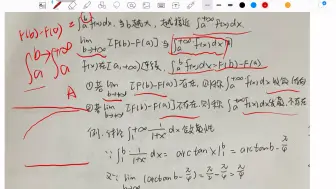 F(b)-F(a) = ∫_a^b f(x)dx, 当b越大, 越接近 ∫_a^{+∞} f(x)dx
lim_{b→+∞} [F(b)-F(a)] ∫_a^{+∞} f(x)dx
∫_a^{b→+∞} ∫_a^{+∞} f(x)在[a,+∞)连续, ∫_a^b f(x)dx=F(b)-F(a)
A ①若 lim [F(b)-F(a)] 存在, 则称 ∫_a^{+∞} f(x)dx 收敛
②若 lim [F(b)-F(a)] 不存在, 则称 ∫_a^{+∞} f(x)dx 发散, 不存在
例. 讨论 ∫_1^{+∞} 1/(1+x²) dx 敛散性
∵ ∫_1^b 1/(1+x²) dx = arctan x |_1^b = arctan b - π/4
又∵ lim (arctan b - π/4) = π/2 - π/4 = π/4